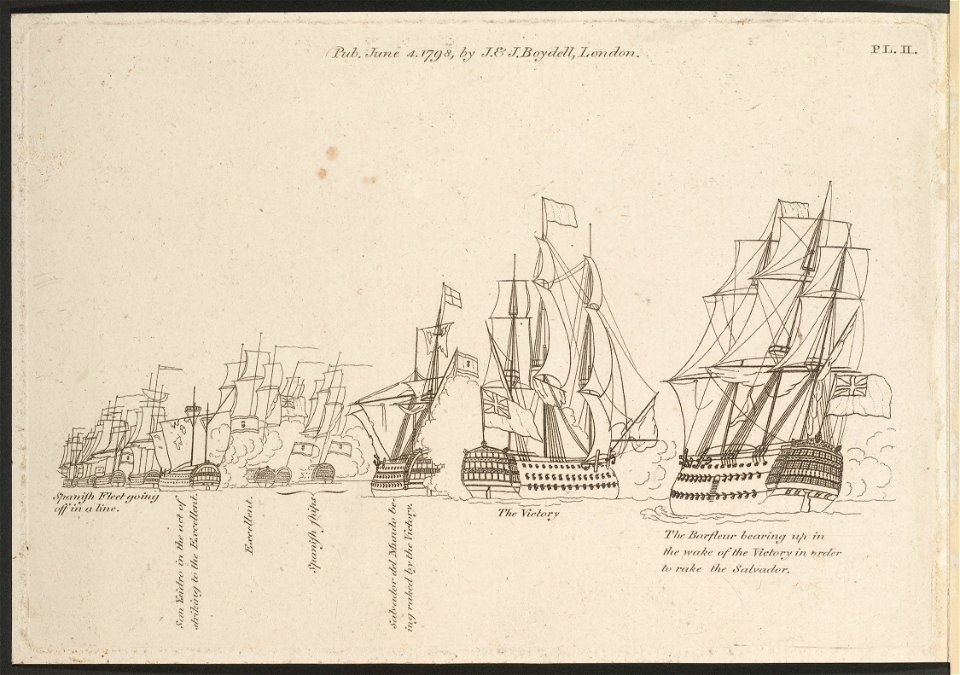 Pub. June 4. 1798, by J. & J. Boydell, London.
PL. II.
Spanish Fleet going
off in a line.
San Ysidro in the act of
striking to the Excellent.
Excellent.
Spanish ships
Salvador del Mundo be-
ing raked by the Victory.
The Victory
The Barfleur bearing up in
the wake of the Victory in order
to rake the Salvador.